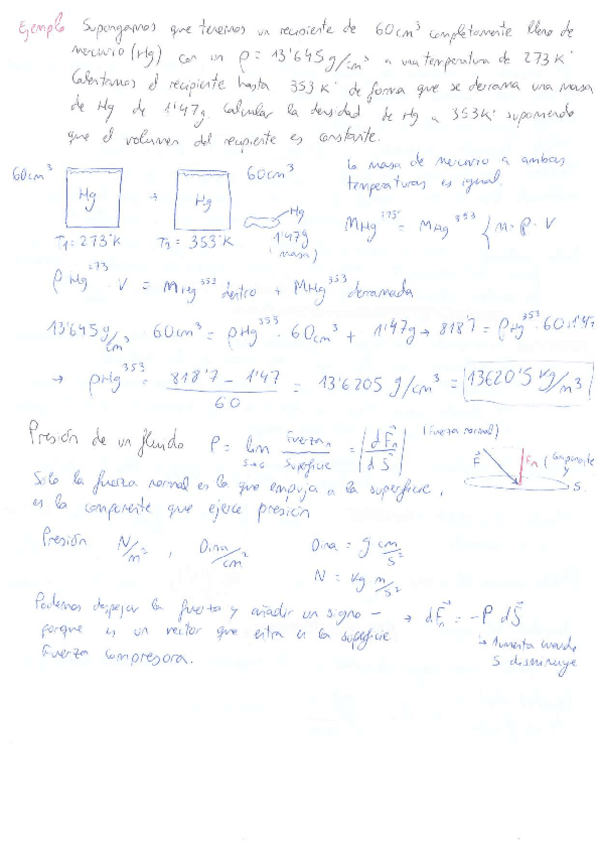 Ejemplo Supongamos que tenemos un recipiente de 60cm³ completamente lleno de
mercurio (Hg) con un ρ = 13'645 g/cm³ a una temperatura de 273 K˙
Calentamos el recipiente hasta 353 K˙ de forma que se derrama una masa
de Hg de 1'47g. Calcular la densidad de Hg a 353K˙ suponiendo
que el volumen del recipiente es constante.
60cm³ Hg + Hg 60cm³
La masa de mercurio a ambas
temperaturas es igual.
T₁ = 273°K T₂ = 353°K Hg 1'47g (masa)
MHg²⁷³ = MHg³⁵³ { M = ρ · V
ρHg²⁷³ · V = MHg³⁵³ dentro + MHg³⁵³ derramada
13'645 g/cm³ · 60cm³ = ρHg³⁵³ · 60cm³ + 1'47g → 818'7 = ρHg³⁵³ · 60 + 1'47
→ ρHg³⁵³ = 818'7 − 1'47 / 60 = 13'6205 g/cm³ = 13620'5 kg/m³
Presión de un fluido P = lim S→0 Fuerzaₙ / Superficie = |dF⃗ₙ / dS⃗| (Fuerza normal)
F⃗ Fₙ (Componente y S
Solo la fuerza normal es la que empuja a la superficie,
es la componente que ejerce presión
Presión N/m², Dina/cm² Dina = g cm/s²
N = kg m/s²
Podemos despejar la fuerza y añadir un signo − → dF⃗ₙ = −P dS⃗
porque es un vector que entra en la superficie
Fuerza compresora.
↳ Aumenta cuando
S disminuye